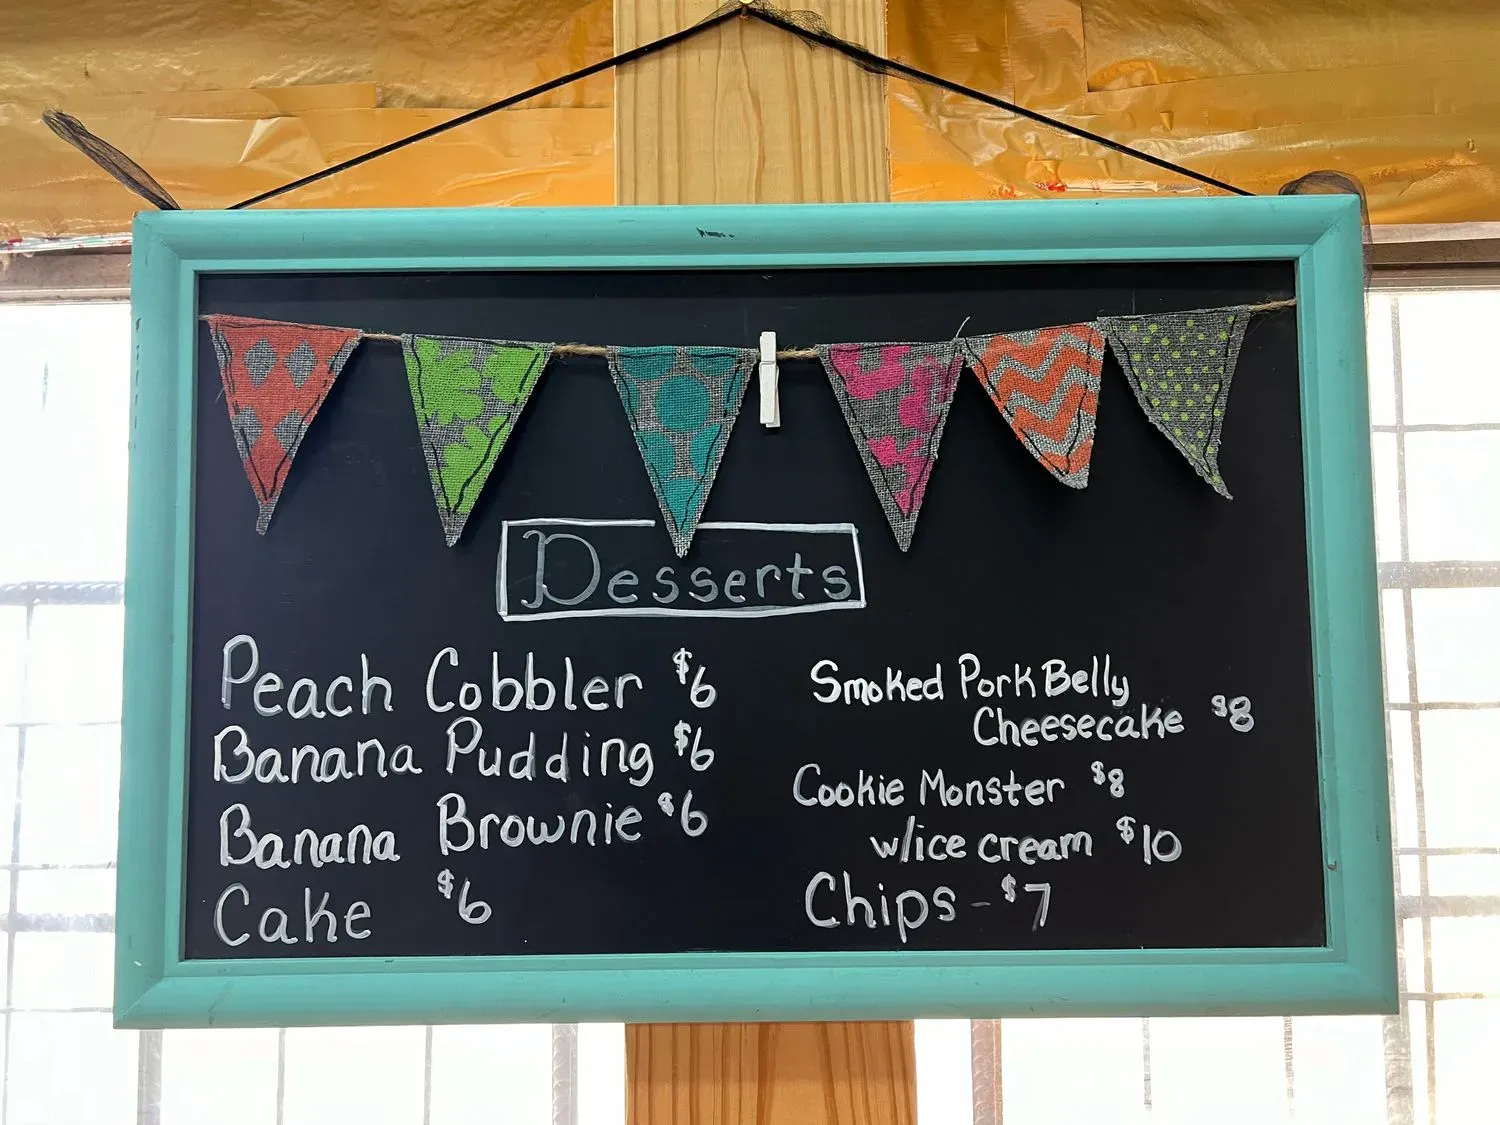 Desserts
Peach Cobbler $6
Banana Pudding $6
Banana Brownie $6
Cake $6
Smoked Pork Belly
Cheesecake $8
Cookie Monster $8
w/ice cream $10
Chips - $7